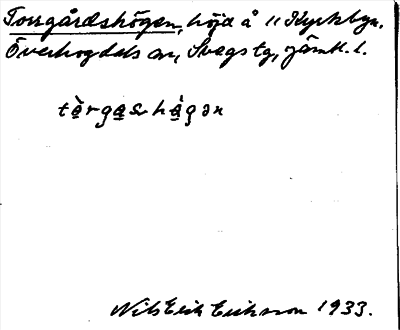 Torsgårdshögen, höjd å 11 Kyrkbyn.
Överhogdals sn, Svegs tg, Jämtl. l.
Nils Erik Eriksson 1933.